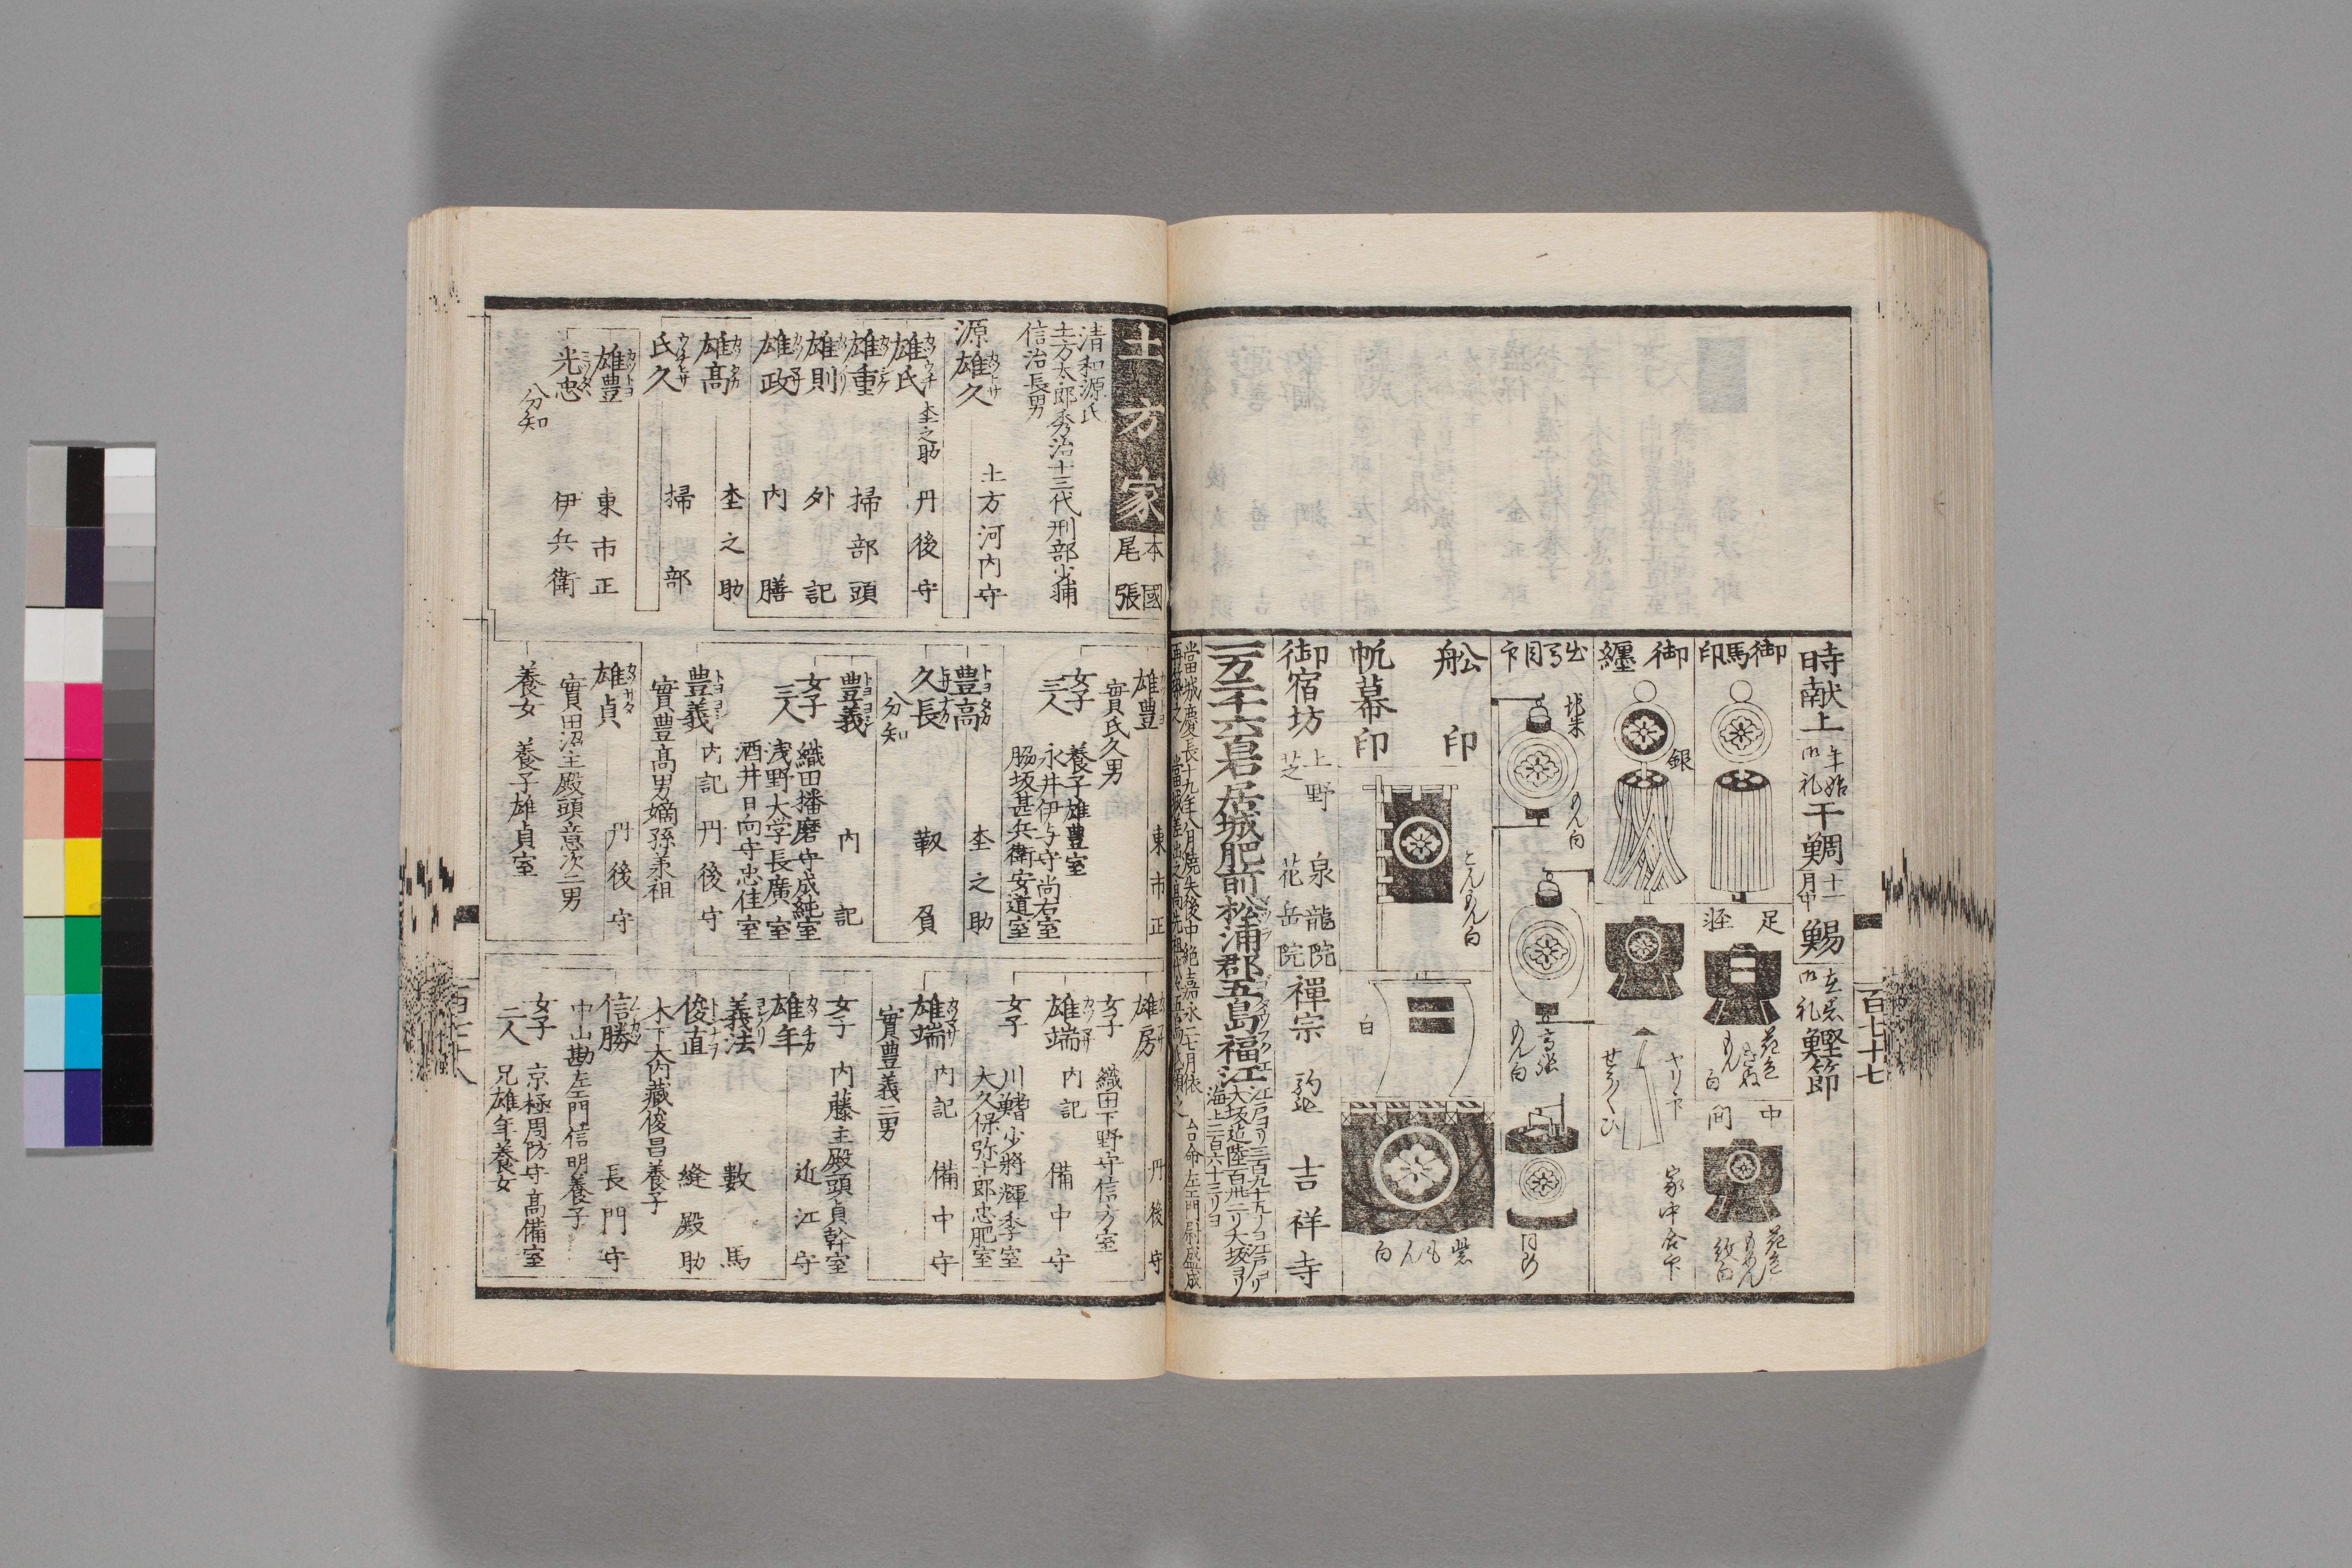 時献上
年始
御礼
干鯛
十一
月中
鯣
在着
御礼
鰹節
御馬印
足
軽
花色
もん
白
中
間
花色
もめん
紋白
御纒
銀
ヤリ印
家中合印
もん白
もん白
高張
同め
舩印
帆幕印
こんもん白
白
紫
もん白
御宿坊
上野
芝
泉龍院
花岳院
禅宗
駒込
吉祥寺
一万二千六百石居城肥前松浦郡五島福江
江戸ヨリ三百九十九リヨ江戸ヨリ
大坂迄陸百卅二リ大坂ヨリ
海上二百六十三リヨ
當城慶長十九年八月焼失後中絶嘉永二七月依
台命左エ門尉盛成
再築之
百七十七
土方家
本國
尾張
清和源氏
土方太郎秀治十三代刑部少輔
信治長男
源雄久 土方河内守
雄氏 杢之助 丹後守
雄重 掃部頭
雄則 外記
雄政 内膳
雄高 杢之助
氏久 掃部
雄豊 東市正
光忠 伊兵衛
分知
雄豊 東市正
實氏久男
女子三人
養子雄豊室
永井伊与守尚右室
脇坂甚兵衛安道室
豊高 杢之助
久長 靱負
分知
豊義 内記
女子三人
織田播磨守成純室
浅野大学長廣室
酒井日向守忠佳室
豊義 内記 丹後守
實豊高男嫡孫承祖
雄貞 丹後守
實田沼主殿頭意次二男
養女 養子雄貞室
雄房 丹後守
女子 織田下野守信方室
雄端 内記 備中守
女子
川鰭少将輝季室
大久保弥十郎忠肥室
雄端 内記 備中守
實豊義二男
女子 内藤主殿頭貞幹室
雄年 近江守
義法 數馬
俊直 縫殿助
木下大内蔵俊昌養子
信勝 長門守
中山勘左エ門信明養子
女子二人
京極周防守高備室
兄雄年養女